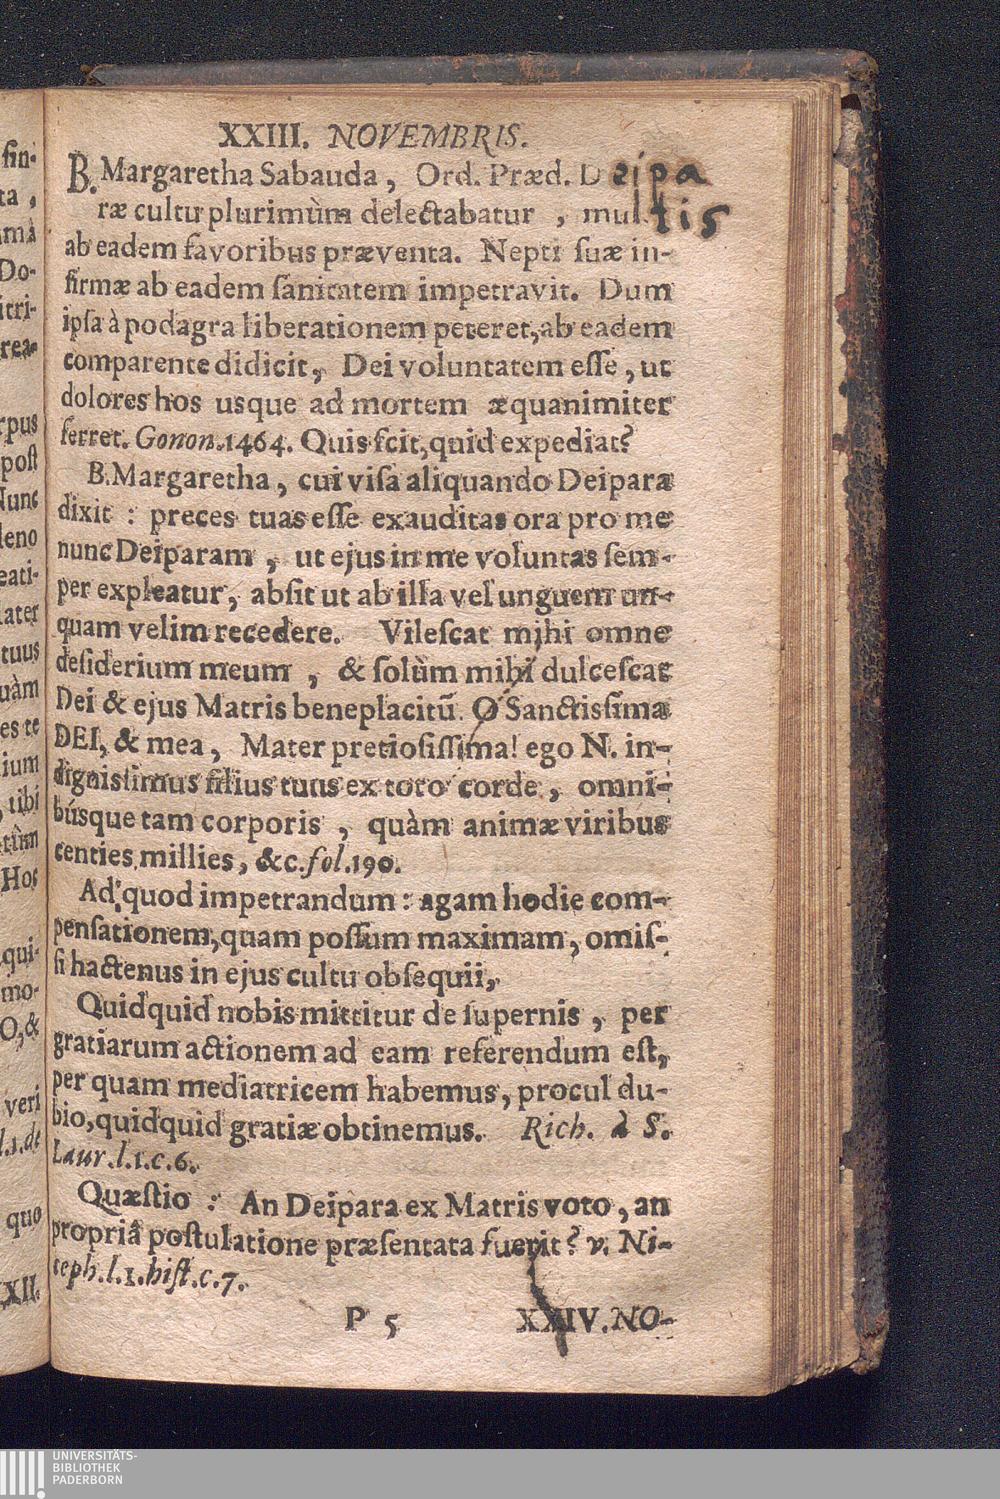 XXIII. NOVEMBRIS.
B. Margaretha Sabauda, Ord. Præd. Deipa
ræ cultu plurimùm delectabatur, multis
ab eadem favoribus præventa. Nepti ſuæ in-
firmæ ab eadem ſanitatem impetravit. Dum
ipſa à podagra liberationem peteret, ab eadem
comparente didicit, Dei voluntatem eſſe, ut
dolores hos usque ad mortem æquanimiter
ferret. Gonon. 1464. Quis ſcit, quid expediat?
B. Margaretha, cui viſa aliquando Deipara
dixit : preces tuas eſſe exauditas ora pro me
nunc Deiparam, ut ejus in me voluntas ſem-
per expleatur, abſit ut ab illa vel unguem un-
quam velim recedere. Vileſcat mihi omne
deſiderium meum, & ſolùm mihi dulceſcat
Dei & ejus Matris beneplacitū. O Sanctisſima
DEI, & mea, Mater pretioſiſſima! ego N. in-
dignisſimus filius tuus ex toto corde, omni-
búsque tam corporis, quàm animæ viribus
centies, millies, &c. fol. 190.
Ad quod impetrandum : agam hodie com-
penſationem, quam posſum maximam, omiſ-
ſi hactenus in ejus cultu obſequii,
Quidquid nobis mittitur de ſupernis, per
gratiarum actionem ad eam referendum eſt,
per quam mediatricem habemus, procul du-
bio, quidquid gratiæ obtinemus. Rich. à S.
Laur. l. 1. c. 6.
Quæſtio : An Deipara ex Matris voto, an
propriâ poſtulatione præſentata fuerit? v. Ni-
ceph. l. 1. hiſt. c. 7.
P 5 XXIV. NO-
ſin-
ta,
Do-
itri-
rea-
rpus
poſt
Nunc
leno
eati-
ater
tuus
uàm
es te
ium
, tibi
Hos
qui-
mo-
O, &
veri
l. 1. de
quo
XII.
UNIVERSITÄTS-
BIBLIOTHEK
PADERBORN